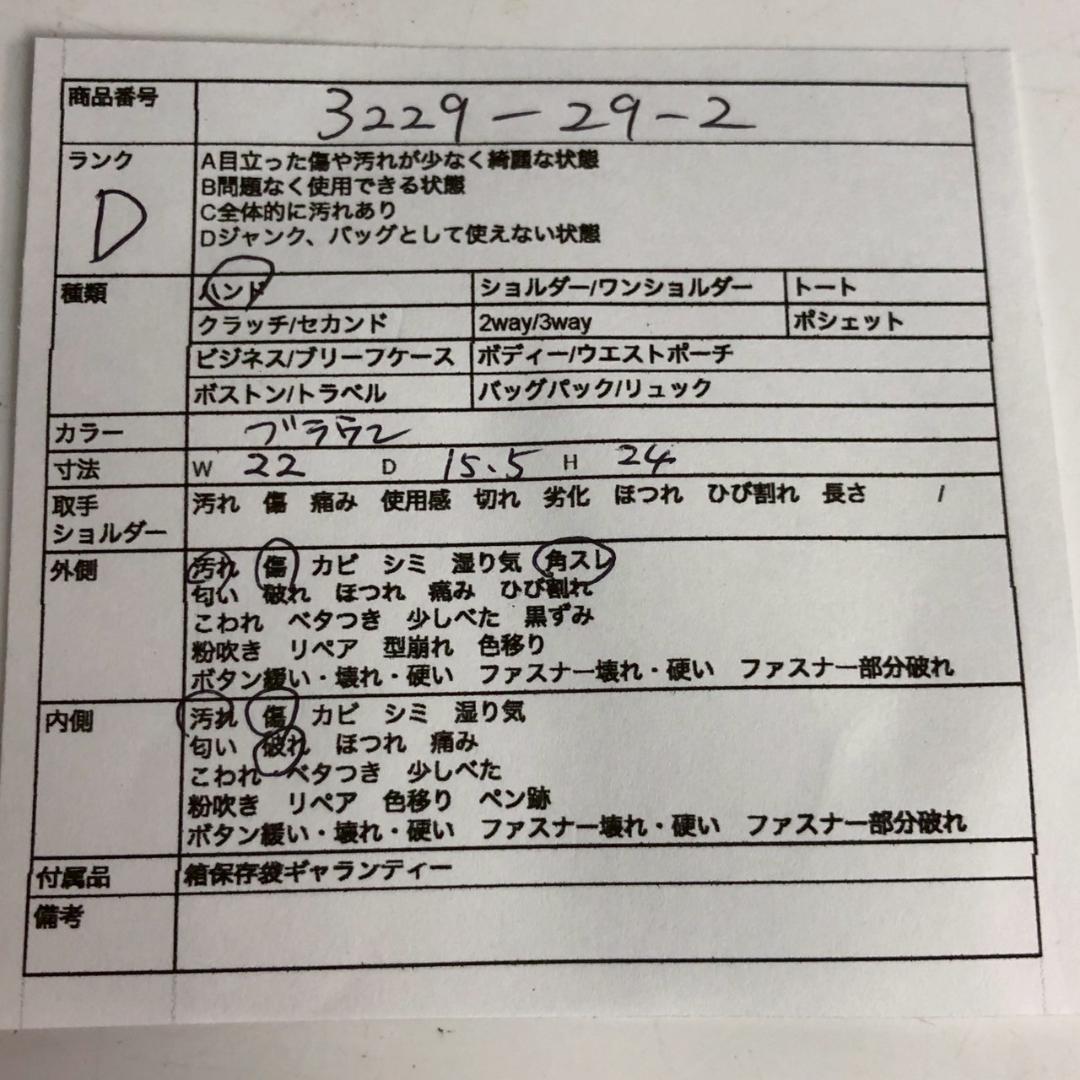 商品番号 3229-29-2
ランク A目立った傷や汚れが少なく綺麗な状態
B問題なく使用できる状態
C全体的に汚れあり
Dジャンク、バッグとして使えない状態
D
種類 ハンド ショルダー/ワンショルダー トート
クラッチ/セカンド 2way/3way ポシェット
ビジネス/ブリーフケース ボディー/ウエストポーチ
ボストン/トラベル バッグパック/リュック
カラー ブラウン
寸法 W 22 D 15.5 H 24
取手 汚れ 傷 痛み 使用感 切れ 劣化 ほつれ ひび割れ 長さ /
ショルダー
外側 汚れ 傷 カビ シミ 湿り気 角スレ
匂い 破れ ほつれ 痛み ひび割れ
こわれ ベタつき 少しべた 黒ずみ
粉吹き リペア 型崩れ 色移り
ボタン緩い・壊れ・硬い ファスナー壊れ・硬い ファスナー部分破れ
内側 汚れ 傷 カビ シミ 湿り気
匂い 破れ ほつれ 痛み
こわれ ベタつき 少しべた
粉吹き リペア 色移り ペン跡
ボタン緩い・壊れ・硬い ファスナー壊れ・硬い ファスナー部分破れ
付属品 箱保存袋ギャランティー
備考